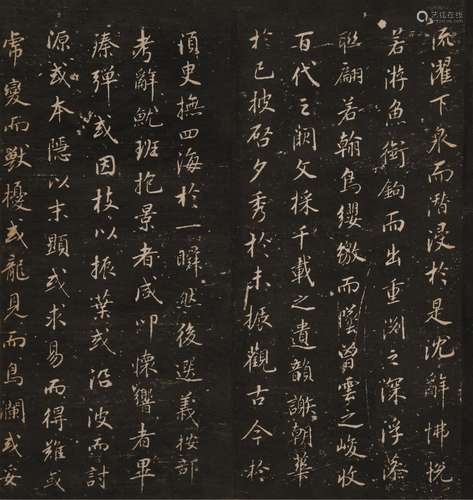 流濯下泉而潛浸於是沈辭怫悅
若游魚銜鉤而出重淵之深浮藻
聯翩若翰鳥纓繳而墜曾雲之峻收
百代之闕文採千載之遺韻謝朝華
於已披啓夕秀於未振觀古今於
須臾撫四海於一瞬然後選義按部
考辭就班抱景者咸叩懷響者畢
彈或因枝以振葉或沿波而討
源或本隱以末顯或求易而得難或
虎變而獸擾或龍見而鳥瀾或妥